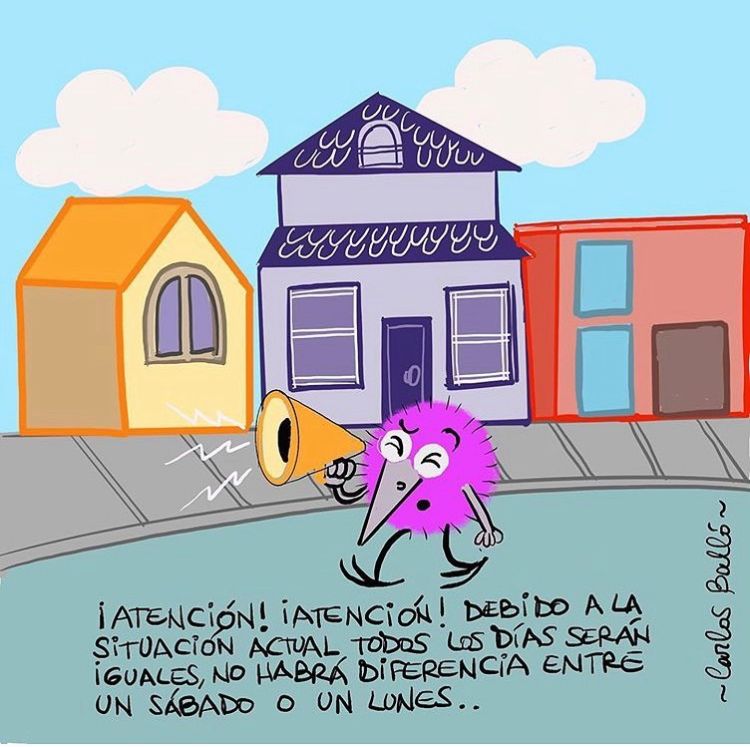 ¡ATENCIÓN! ¡ATENCIÓN! DEBIDO A LA
SITUACIÓN ACTUAL TODOS LOS DÍAS SERÁN
IGUALES, NO HABRÁ DIFERENCIA ENTRE
UN SÁBADO O UN LUNES..
~Carlos Balló~